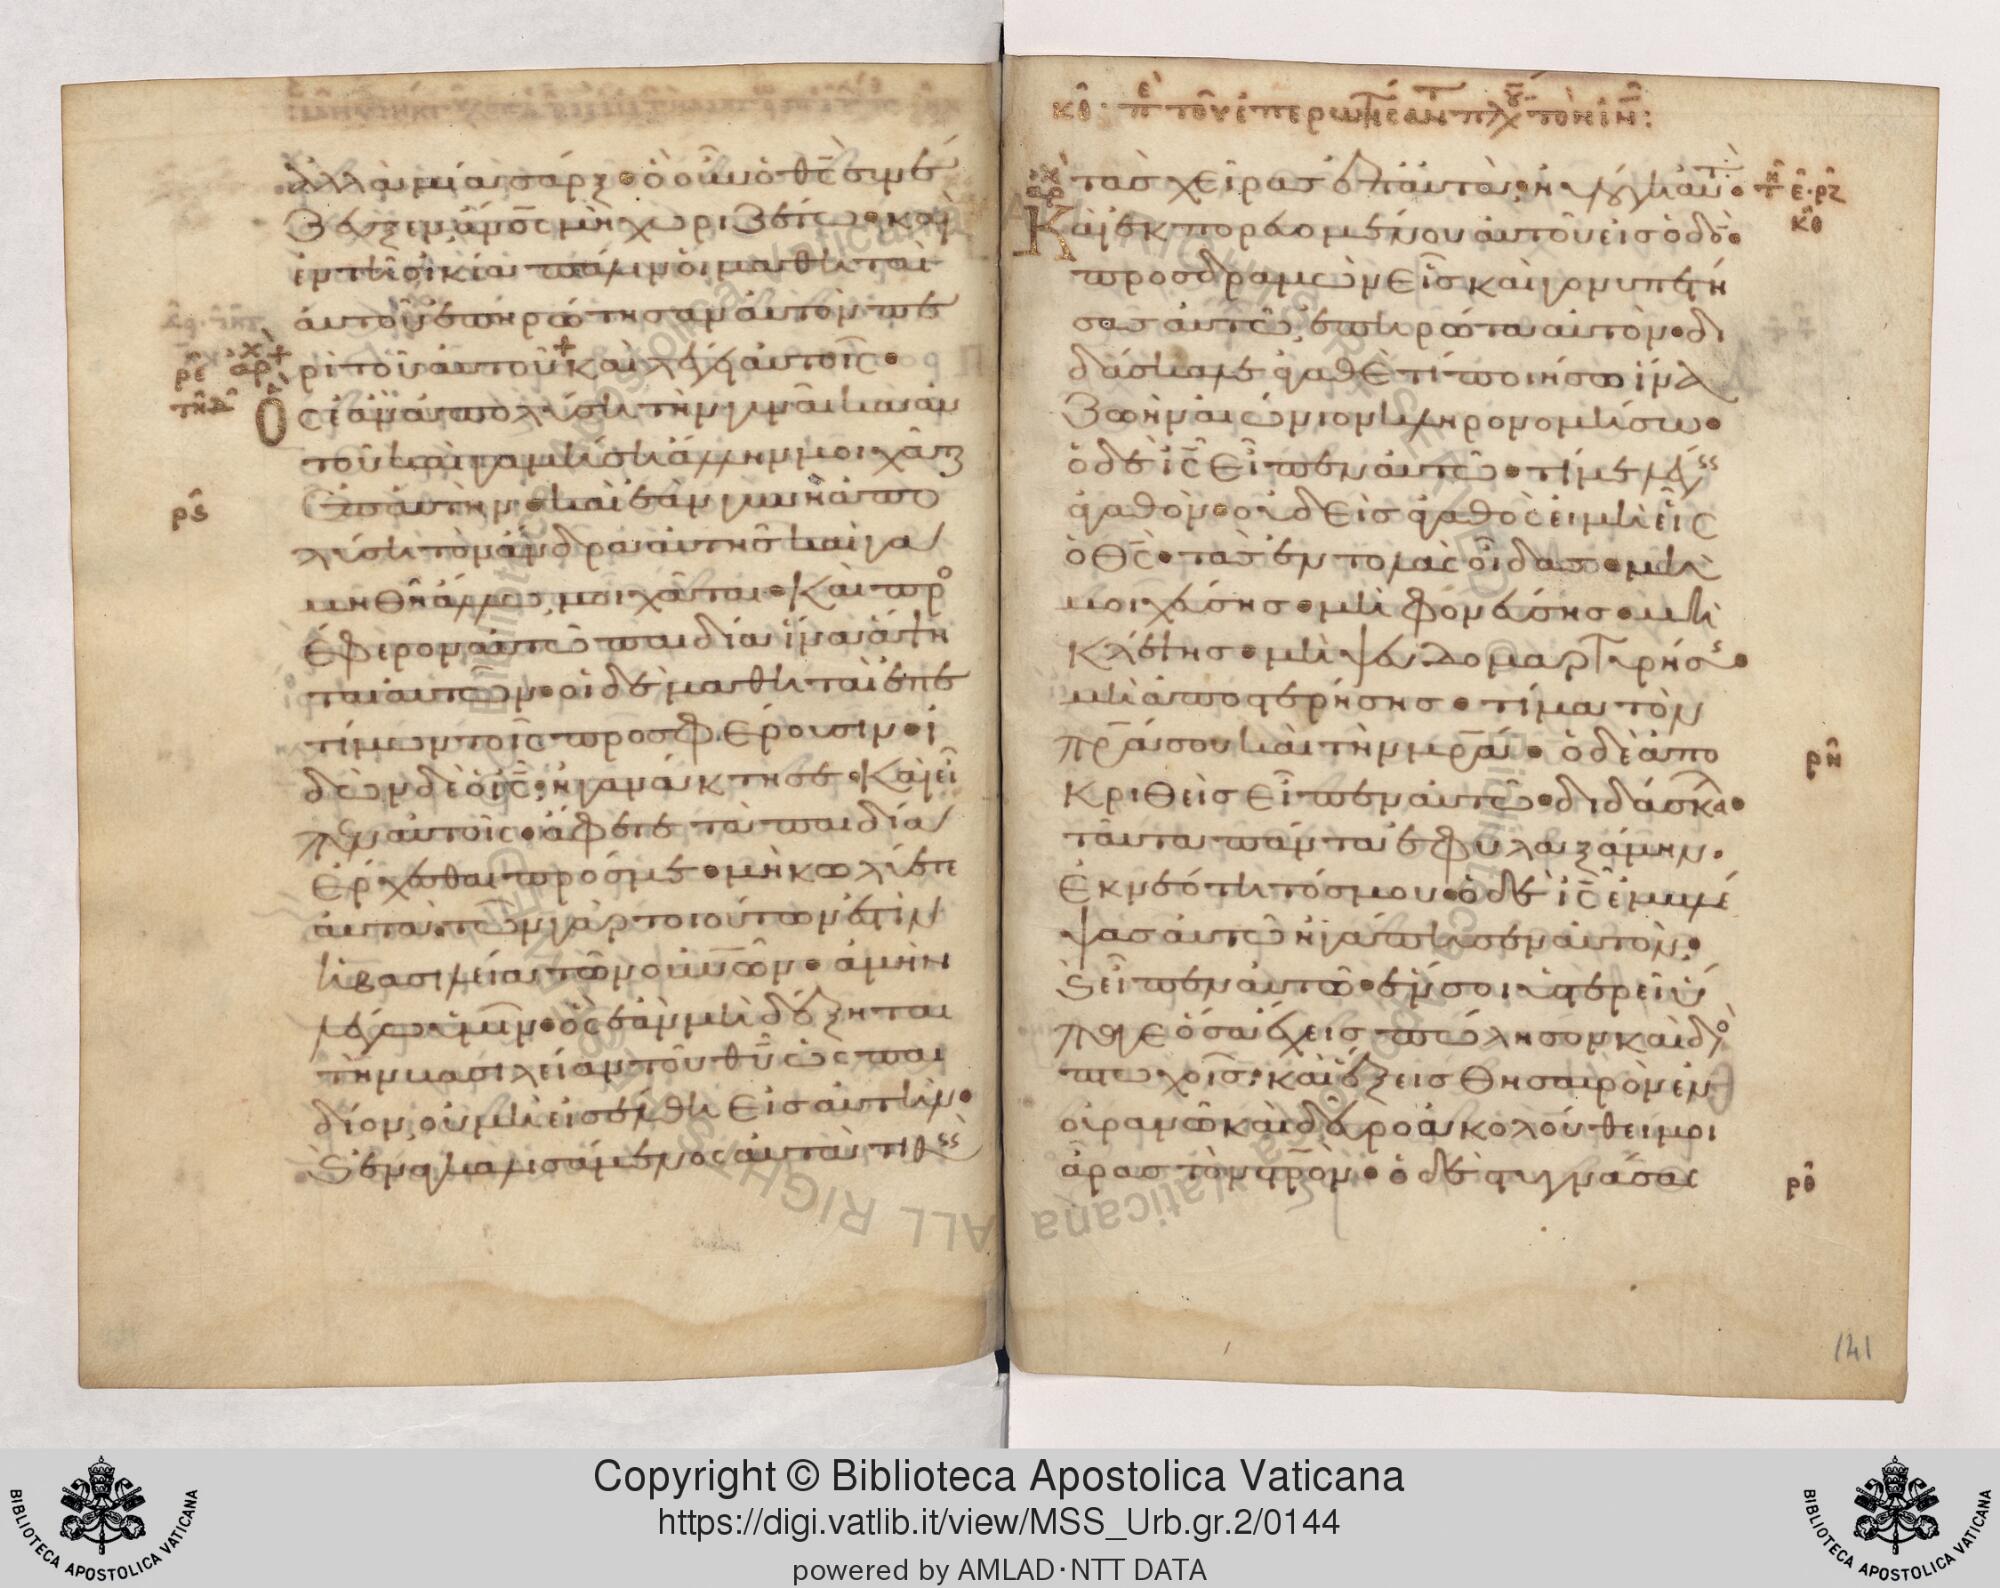 ἀλλὰ μία σάρξ· ὃ οὖν ὁ θς συνέ
ζευξεν ἄνος μὴ χωριζέτω· καὶ
ἐν τῇ οἰκία πάλιν οἱ μαθηταὶ
αὐτοῦ ἐπηρώτησαν αὐτὸν πε
ρὶ τοῦ αὐτοῦ + καὶ λέγει αὐτοῖς·
Ὃς ἐὰν ἀπολύση τὴν γυναῖκα αὐ
τοῦ καὶ γαμήση ἄλλην μοιχᾶτ
ἐπ αὐτήν· καὶ ἐὰν γυνὴ ἀπο
λύση τὸν ἄνδρα αὐτῆς καὶ γα
μηθῆ ἄλλω, μοιχᾶται· Καὶ προ
έφερον αὐτῶ παιδία ἵνα ἅψη
ται αὐτῶν· οἱ δὲ μαθηταὶ ἐπε
τίμων τοῖς προσφέρουσιν· ἰ
δὼν δὲ ὁ ις, ἠγανάκτησε· Καὶ εἶ
πεν αὐτοῖς· ἄφετε τὰ παιδία
ἔρχεσθαι πρός με· μὴ κωλύετε
αὐτά· τῶν γὰρ τοιούτων ἐστὶν
ἡ βασιλεία τῶν οὐνῶν· ἀμὴν
λέγω ὑμῖν· ὃς ἐὰν μὴ δέξηται
τὴν βασιλείαν τοῦ θυ ὡς παι
δίον, οὐ μὴ εἰσέλθη εἰς αὐτήν·
καὶ ἐναγκαλισάμενος αὐτὰ τιθεὶς
ρε
ρς
τὰς χεῖρας ἐπ αὐτὰ, ηὐλόγει αὐτά·
Καὶ ἐκπορευομένου αὐτοῦ εἰς ὁδὸν·
προσδραμὼν εἷς καὶ γονυπετή
σας αὐτῶ, ἐπηρώτα αὐτὸν· δι
δάσκαλε ἀγαθὲ τί ποιήσω ἵνα
ζωὴν αἰώνιον κληρονομήσω·
ὁ δὲ ις εἶπεν αὐτῶ· τί με λέγεις
ἀγαθὸν· οὐδεὶς ἀγαθὸς εἰ μὴ εἷς
ὁ Θς· τὰς ἐντολὰς οἶδας· μὴ
μοιχεύσης· μὴ φονεύσης· μὴ
κλέψης· μὴ ψευδομαρτυρήσης·
μὴ ἀποστερήσης· τίμα τὸν
πρα σου καὶ τὴν μρα· ὁ δὲ ἀπο
κριθεὶς εἶπεν αὐτῶ· διδάσκαλε·
ταῦτα πάντα ἐφυλαξάμην·
ἐκ νεότητός μου· ὁ δὲ ις ἐμβλέ
ψας αὐτῶ ἠγάπησεν αὐτὸν·
καὶ εἶπεν αὐτῶ· ἕν σοι ὑστερεῖ ὕ
παγε ὅσα ἔχεις πώλησον καὶ δὸς
πτωχοῖς· καὶ ἕξεις θησαυρὸν ἐν
οὐρανῶ καὶ δεῦρο ἀκολούθει μοι
ἄρας τὸν στρὸν· ὁ δὲ στυγνάσας
ρη
ρθ
141
Copyright © Biblioteca Apostolica Vaticana
https://digi.vatlib.it/view/MSS_Urb.gr.2/0144
powered by AMLAD·NTT DATA
BIBLIOTECA APOSTOLICA VATICANA
BIBLIOTECA APOSTOLICA VATICANA